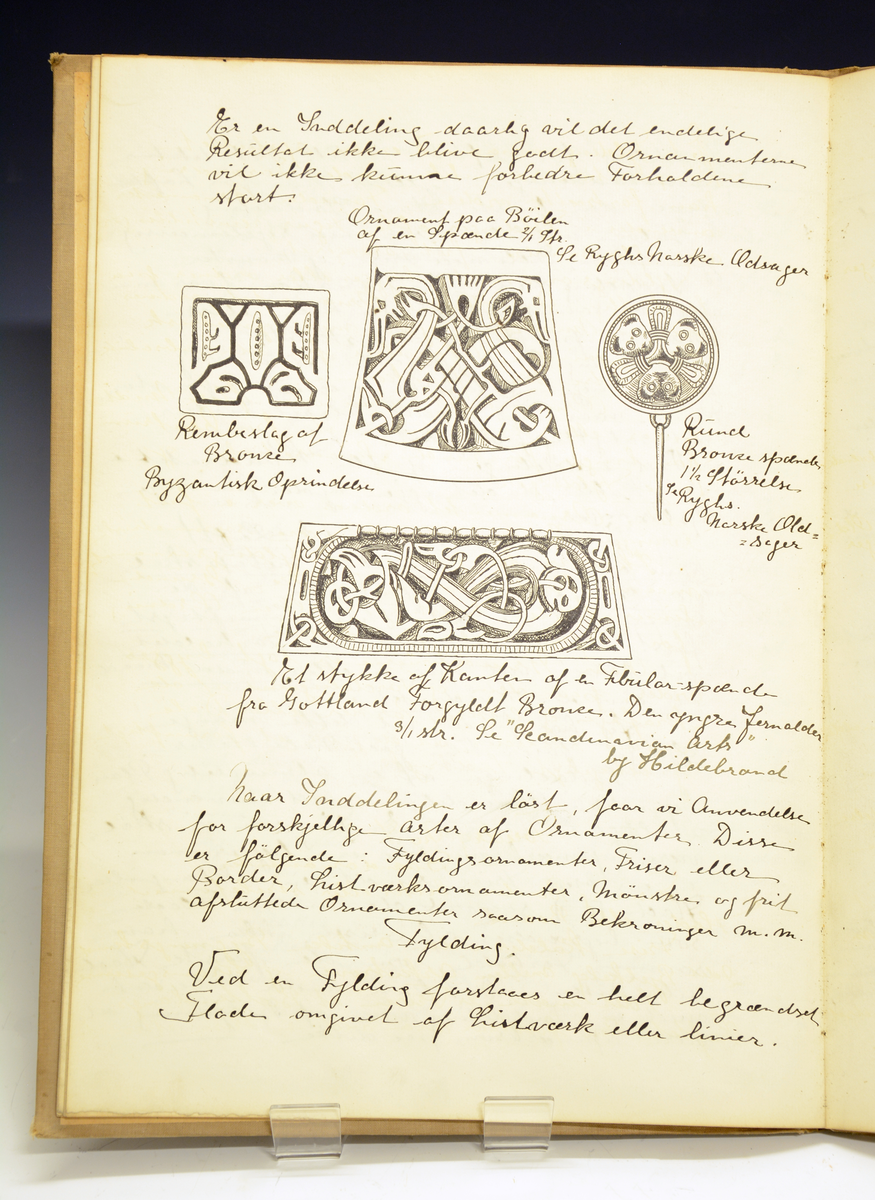 Er en Inddeling daarlig vil det endelige
Resultat ikke blive godt. Ornamenterne
vil ikke kunne forbedre Forholdene
stort.
Ornament paa Böilen
af en Spænde 2/1 Str.
Se Ryghs Norske Oldsager
Rembeslag af
Bronse
Byzantisk Oprindelse
Rund
Bronse spænde
1 1/2 Störrelse
Se Ryghs.
Norske Old=
=sager
Et stykke af Kanten af en Fibular-spænde
fra Gottland Forgyldt Bronse. Den yngre Jernalder
3/1 str. Se "Scandinavian Arts"
by Hildebrand
Naar Inddelingen er löst, faar vi Anvendelse
for forskjellige Arter af Ornamenter. Disse
er fölgende: Fyldingsornamenter, Friser eller
Border, Listværksornamenter, Mönstre og frit
afsluttede Ornamenter saasom Bekroninger m.m.
Fylding.
Ved en Fylding forstaaes en helt begrændset
Flade omgivet af Listværk eller linier.